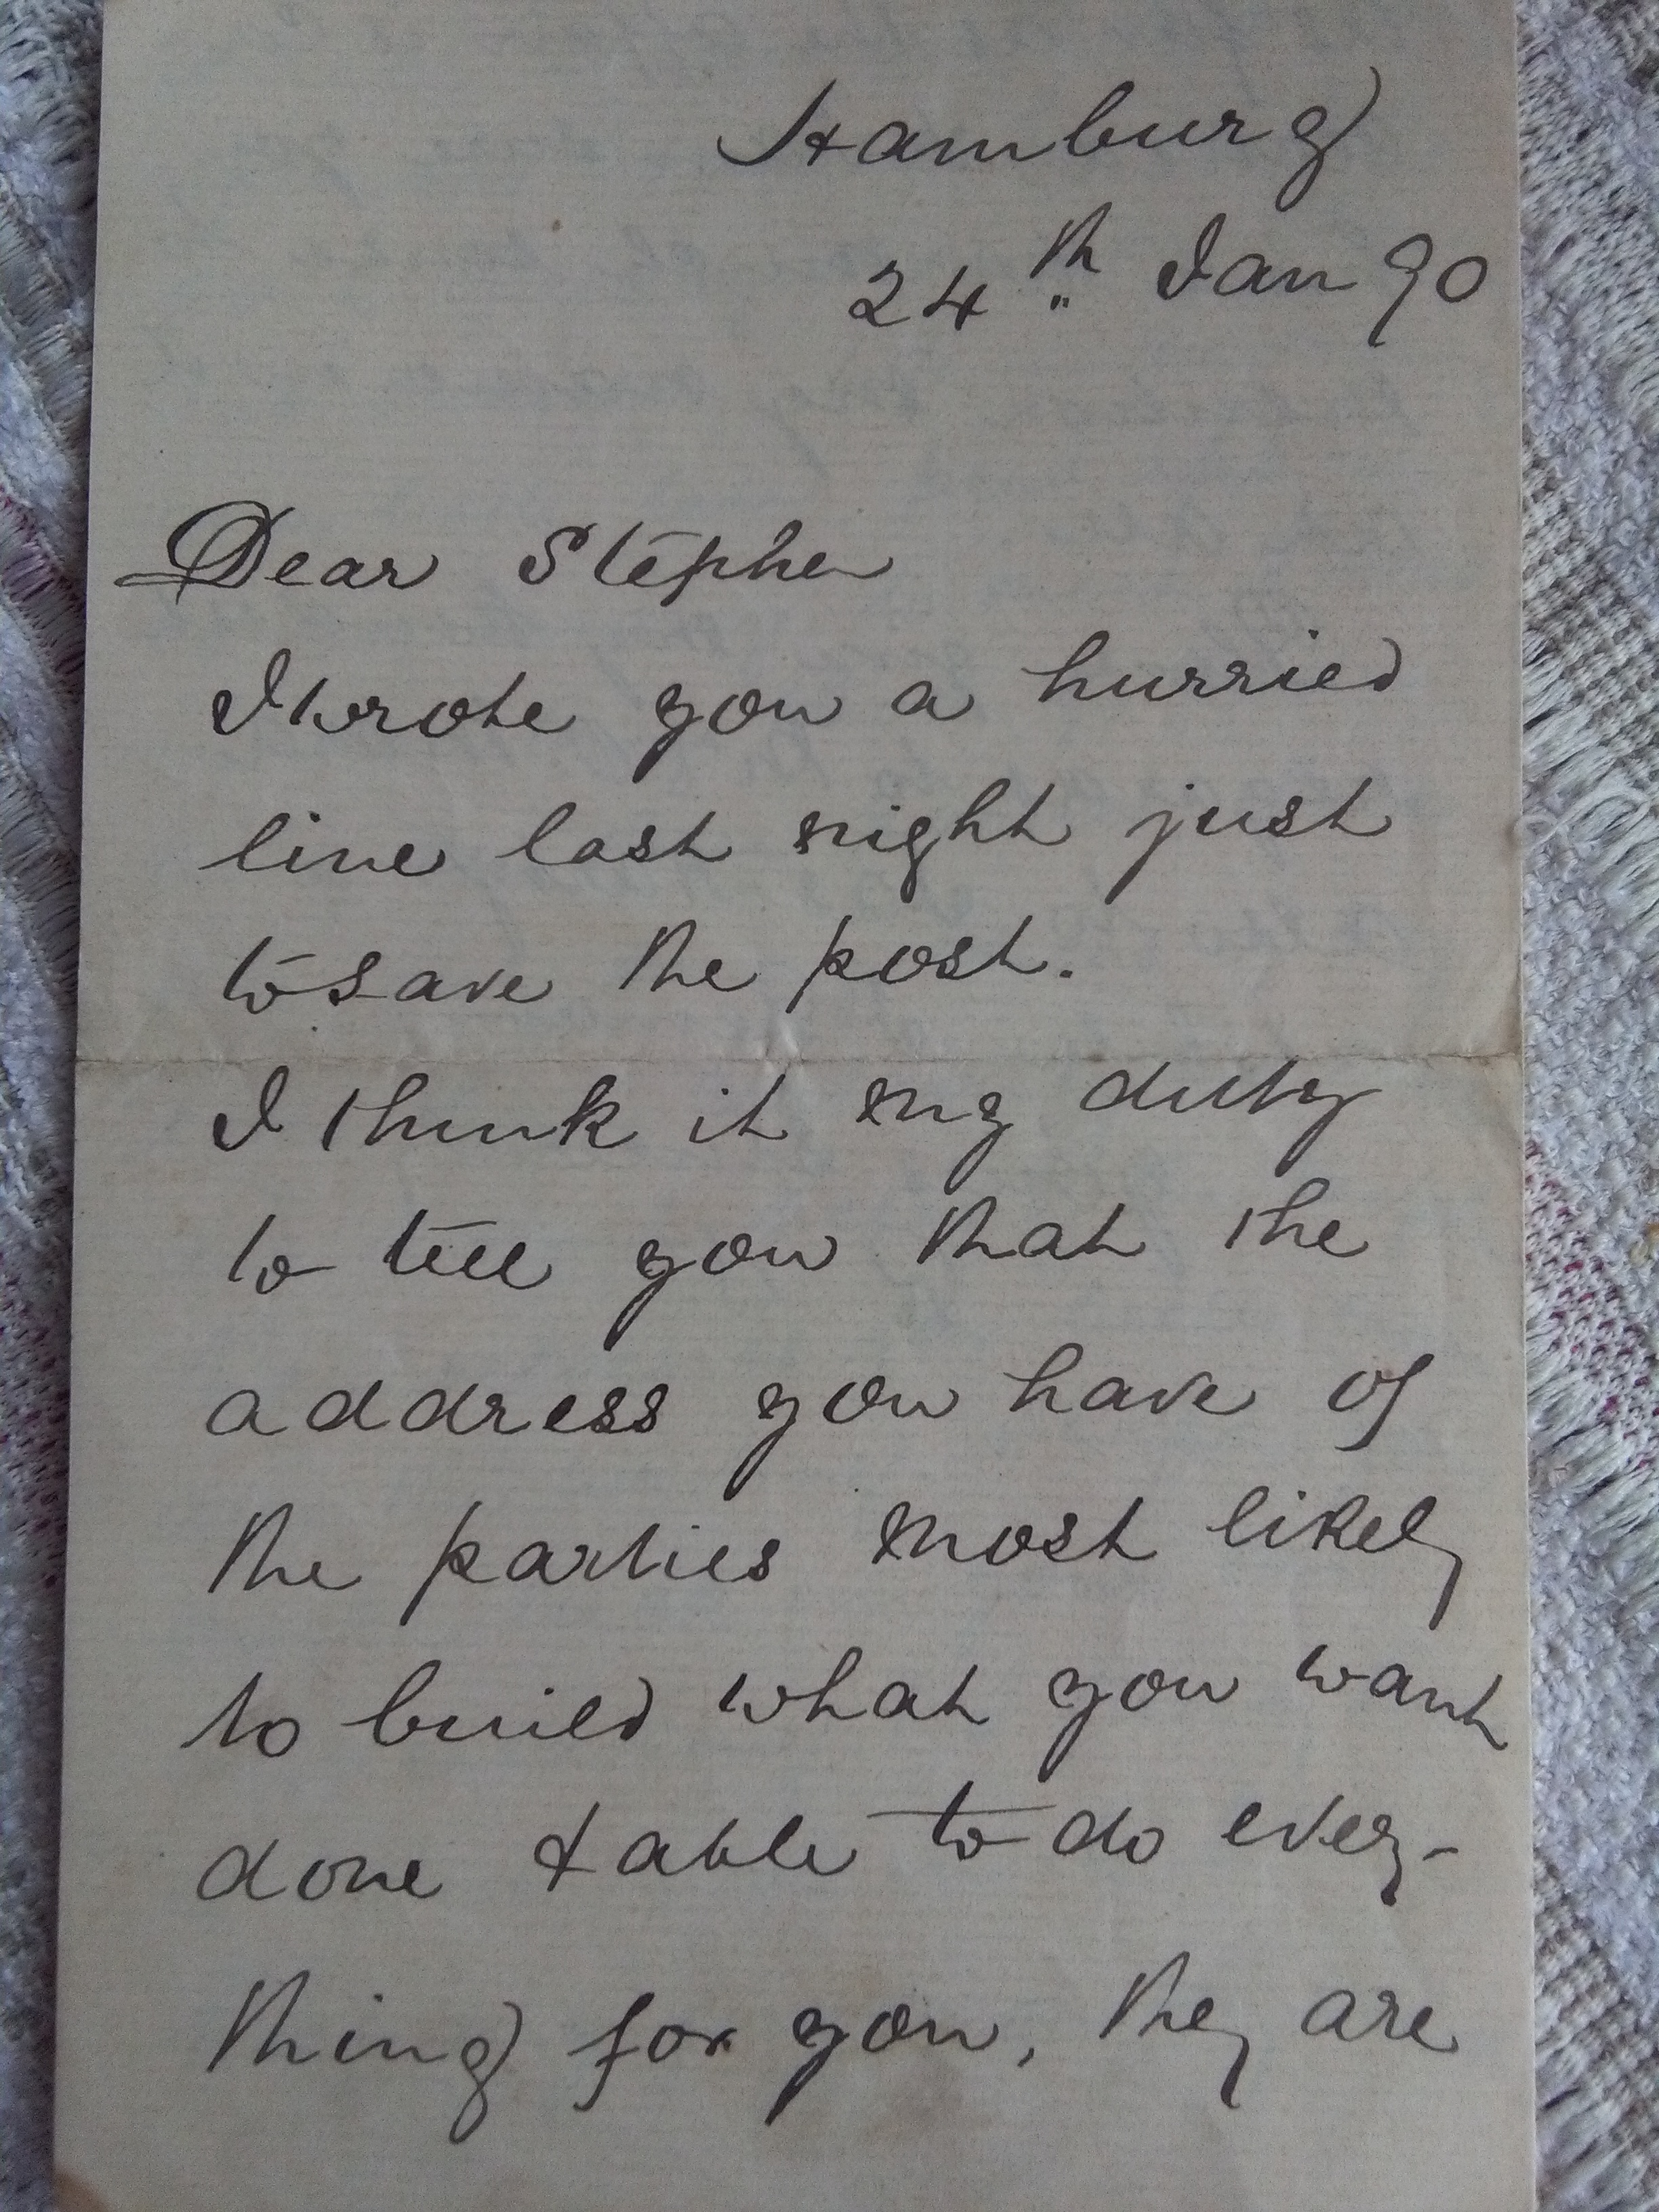 Hamburg
24th Jan 90
Dear Stephen
I wrote you a hurried
line last night just
to save the post.
I think it my duty
to tell you that the
address you have of
the parties most likely
to build what you want
done & able to do every-
thing for you, they are